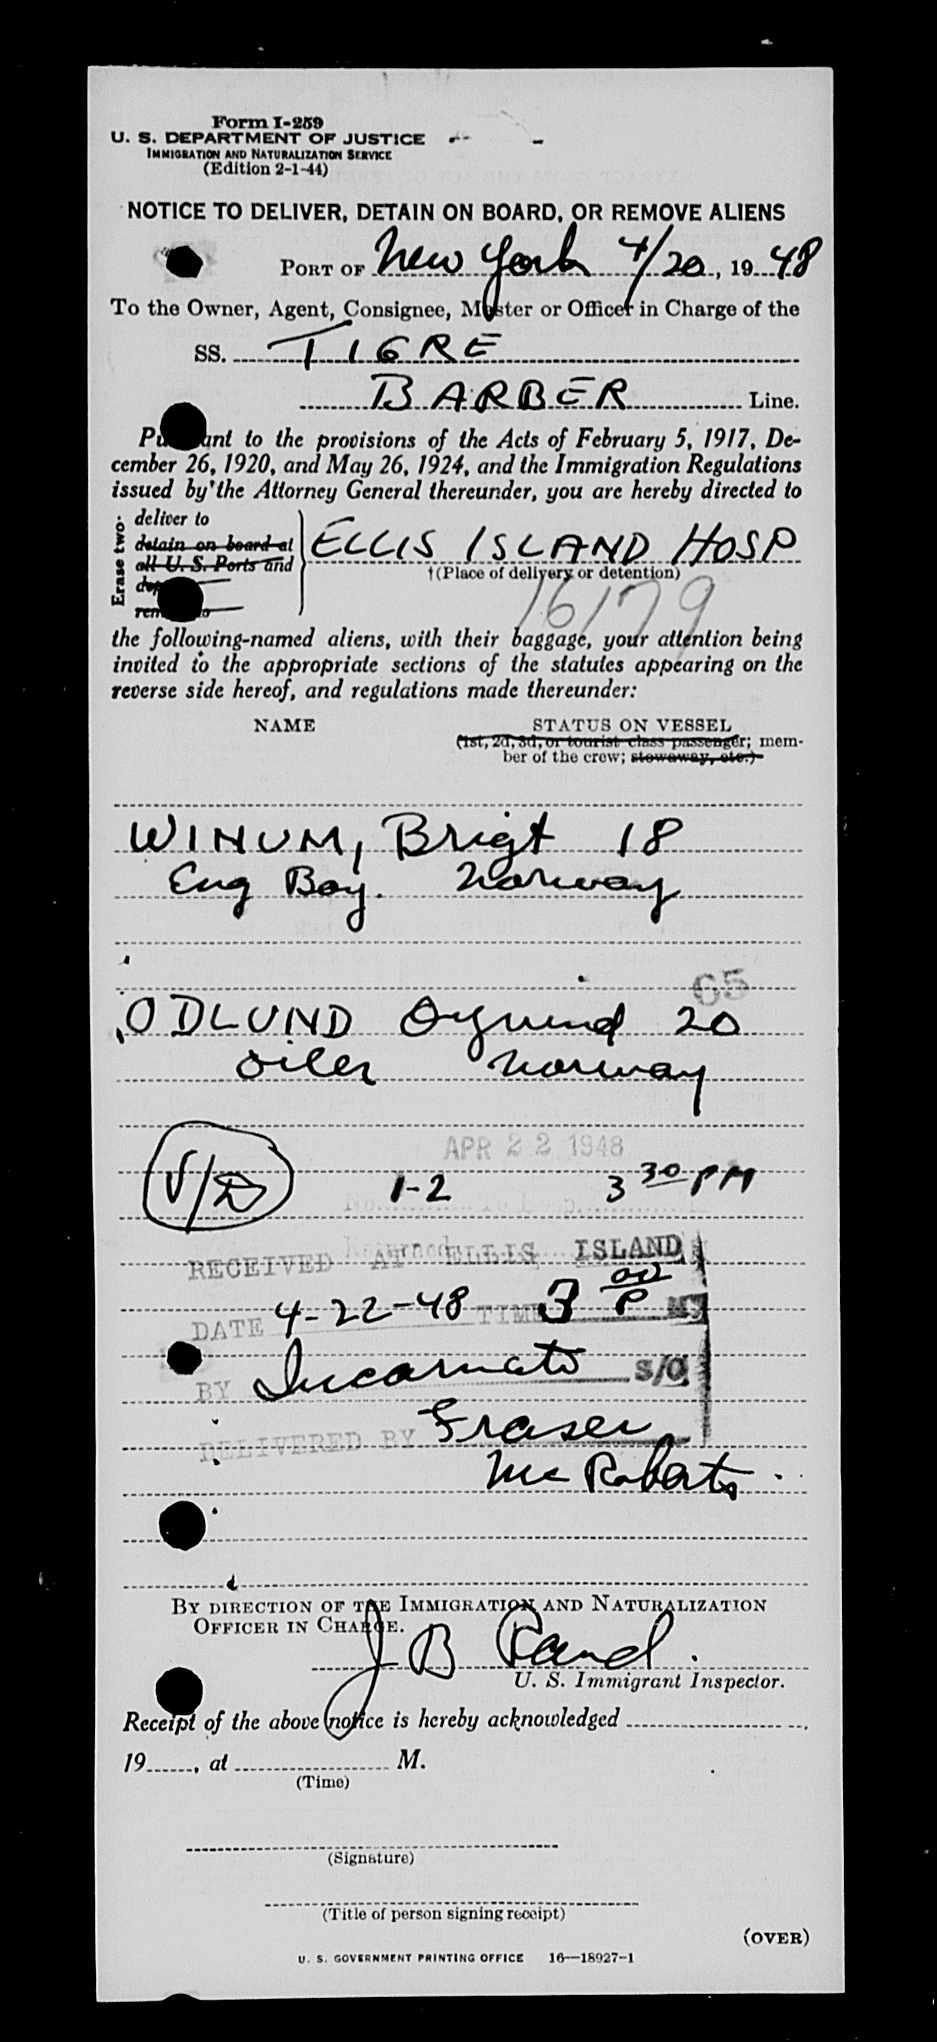 Form I-259
U. S. DEPARTMENT OF JUSTICE
IMMIGRATION AND NATURALIZATION SERVICE
(Edition 2-1-44)
NOTICE TO DELIVER, DETAIN ON BOARD, OR REMOVE ALIENS
PORT OF New York 4/20, 1948
To the Owner, Agent, Consignee, Master or Officer in Charge of the
SS. TIGRE
BARBER Line.
Pursuant to the provisions of the Acts of February 5, 1917, De-
cember 26, 1920, and May 26, 1924, and the Immigration Regulations
issued by the Attorney General thereunder, you are hereby directed to
Erase two.
deliver to
detain on board at ELLIS ISLAND HOSP
all U. S. Ports and
†(Place of delivery or detention)
16179
the following-named aliens, with their baggage, your attention being
invited to the appropriate sections of the statutes appearing on the
reverse side hereof, and regulations made thereunder:
NAME STATUS ON VESSEL
(1st, 2d, 3d, or tourist class passenger; mem-
ber of the crew; stowaway, etc.)
WINUM, Brigt 18
Eng Boy. Norway
65
ODLUND Oyvind 20
oiler Norway
APR 22 1948
V/D 1-2 3 30 PM
RECEIVED AT ELLIS ISLAND
DATE 4-22-48 TIME 3 00 P M
BY Incarnato S/O
DELIVERED BY Fraser
McRoberts
BY DIRECTION OF THE IMMIGRATION AND NATURALIZATION
OFFICER IN CHARGE.
J B Rand.
U. S. Immigrant Inspector.
Receipt of the above notice is hereby acknowledged
19, at M.
(Time)
(Signature)
(Title of person signing receipt)
(OVER)
U. S. GOVERNMENT PRINTING OFFICE 16—18927-1